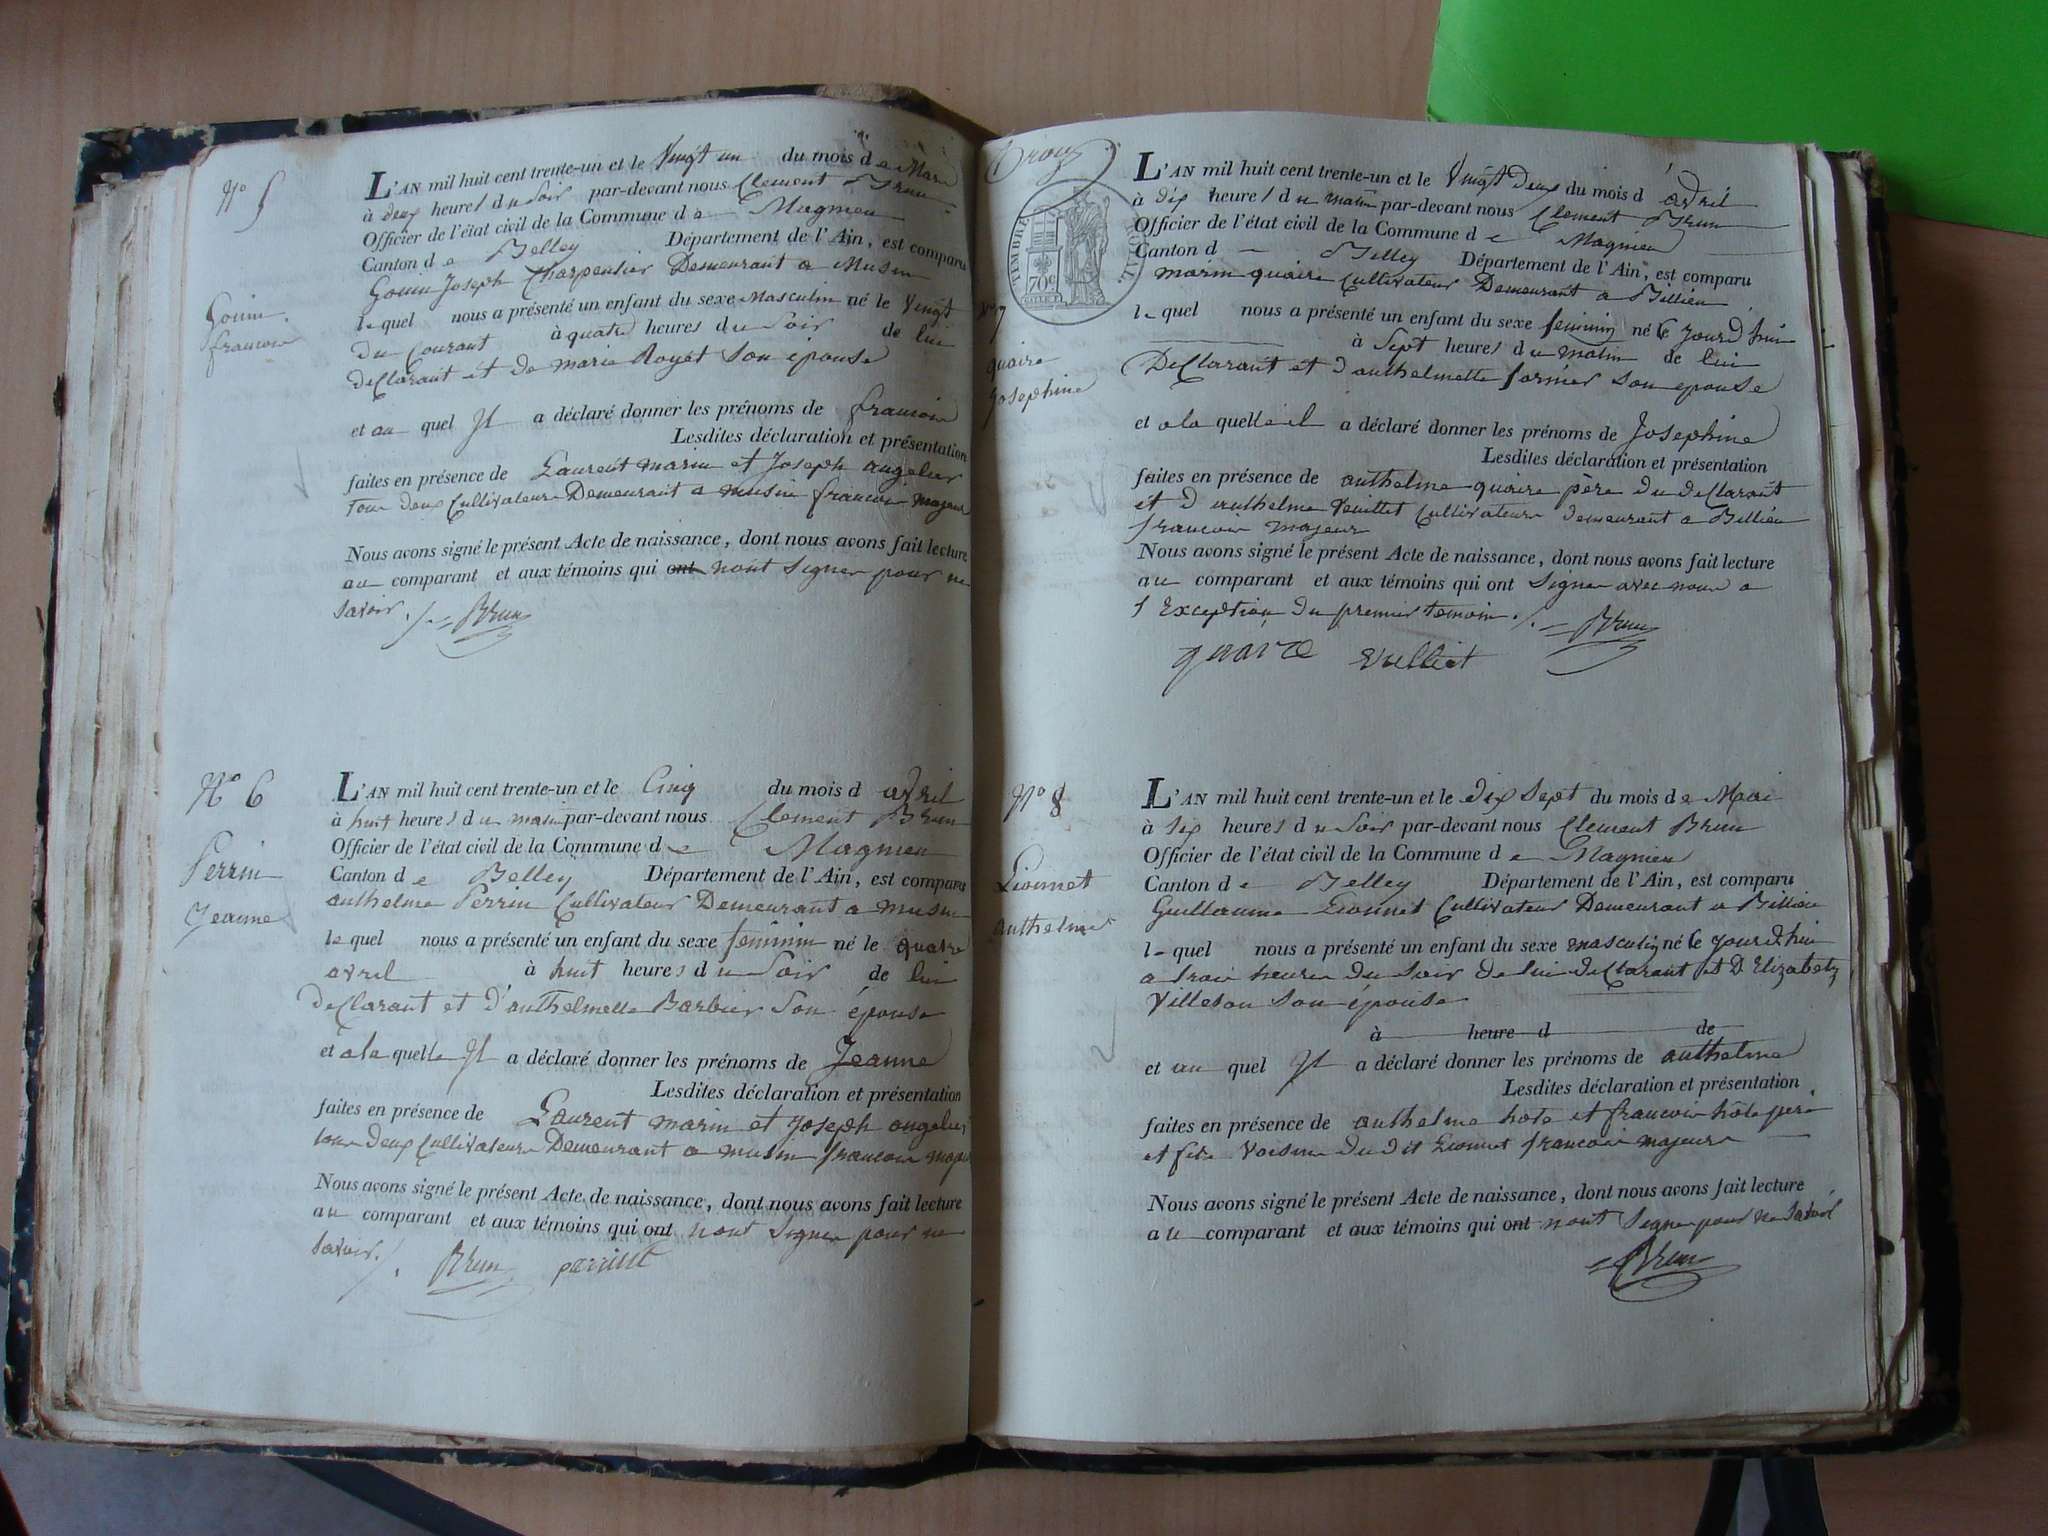 N° 5
Gouin
francois
L'AN mil huit cent trente-un et le Vingt un du mois de Mars
à deux heures du Soir par-devant nous Clement Brun
Officier de l'état civil de la Commune de Magnieu
Canton de Belley Département de l'Ain, est comparu
Gouin Joseph Charpentier Demeurant a Musin
lequel nous a présenté un enfant du sexe Masculin né le Vingt
du Courant à quatre heures du Soir de lui
declarant et de marie Royet Son épouse
et au quel Il a déclaré donner les prénoms de francois
Lesdites déclaration et présentation
faites en présence de Laurent marin et Joseph angelier
tous deux Cultivateurs Demeurant a musin francois majeurs
Nous avons signé le présent Acte de naissance, dont nous avons fait lecture
au comparant et aux témoins qui ont nont Signer pour ne
savoir ./. Brun
N° 6
Perrin
Jeanne
L'AN mil huit cent trente-un et le Cinq du mois d avril
à huit heures du matin par-devant nous Clement Brun
Officier de l'état civil de la Commune de Magnieu
Canton de Belley Département de l'Ain, est comparu
anthelme Perrin Cultivateur Demeurant a musin
lequel nous a présenté un enfant du sexe feminin né le quatre
avril à huit heures du Soir de lui
declarant et d'anthelmette Barbier Son épouse
et a la quelle Il a déclaré donner les prénoms de Jeanne
Lesdites déclaration et présentation
faites en présence de Laurent marin et Joseph angelier
tous deux Cultivateurs Demeurant a musin francois majeurs
Nous avons signé le présent Acte de naissance, dont nous avons fait lecture
au comparant et aux témoins qui ont nont Signer pour ne
savoir ./. Brun
TIMBRE ROYAL
70c
N° 7
quaire
Josephine
L'AN mil huit cent trente-un et le Vingt Deux du mois d avril
à dix heures du matin par-devant nous Clement Brun
Officier de l'état civil de la Commune de Magnieu
Canton d Belley Département de l'Ain, est comparu
marin quaire Cultivateur Demeurant a Billieu
lequel nous a présenté un enfant du sexe feminin né ce jourd'hui
à Sept heures du matin de lui
Declarant et d'anthelmette fornier son epouse
et a la quelle il a déclaré donner les prénoms de Josephine
Lesdites déclaration et présentation
faites en présence de anthelme quaire père du declarant
et d anthelme Veuillet Cultivateurs demeurant a Billieu
francois majeurs
Nous avons signé le présent Acte de naissance, dont nous avons fait lecture
au comparant et aux témoins qui ont Signer avec nous a
l Exception du premier temoin ./. Brun
quaire
N° 8
Lionnet
anthelme
L'AN mil huit cent trente-un et le dix Sept du mois de Mai
à six heures du Soir par-devant nous Clement Brun
Officier de l'état civil de la Commune de Magnieu
Canton de Belley Département de l'Ain, est comparu
Guillaume Lionnet Cultivateur Demeurant a Billieu
lequel nous a présenté un enfant du sexe masculin né ce jourd'hui
a trois heures du Soir de lui declarant et D Elizabeth
Son épouse
à heure d de
et au quel Il a déclaré donner les prénoms de anthelme
Lesdites déclaration et présentation
faites en présence de anthelme hote et francois hôte père
et fils Voisins du dit Lionnet francois majeurs
Nous avons signé le présent Acte de naissance, dont nous avons fait lecture
au comparant et aux témoins qui ont nont Signer pour ne Savoir
Brun